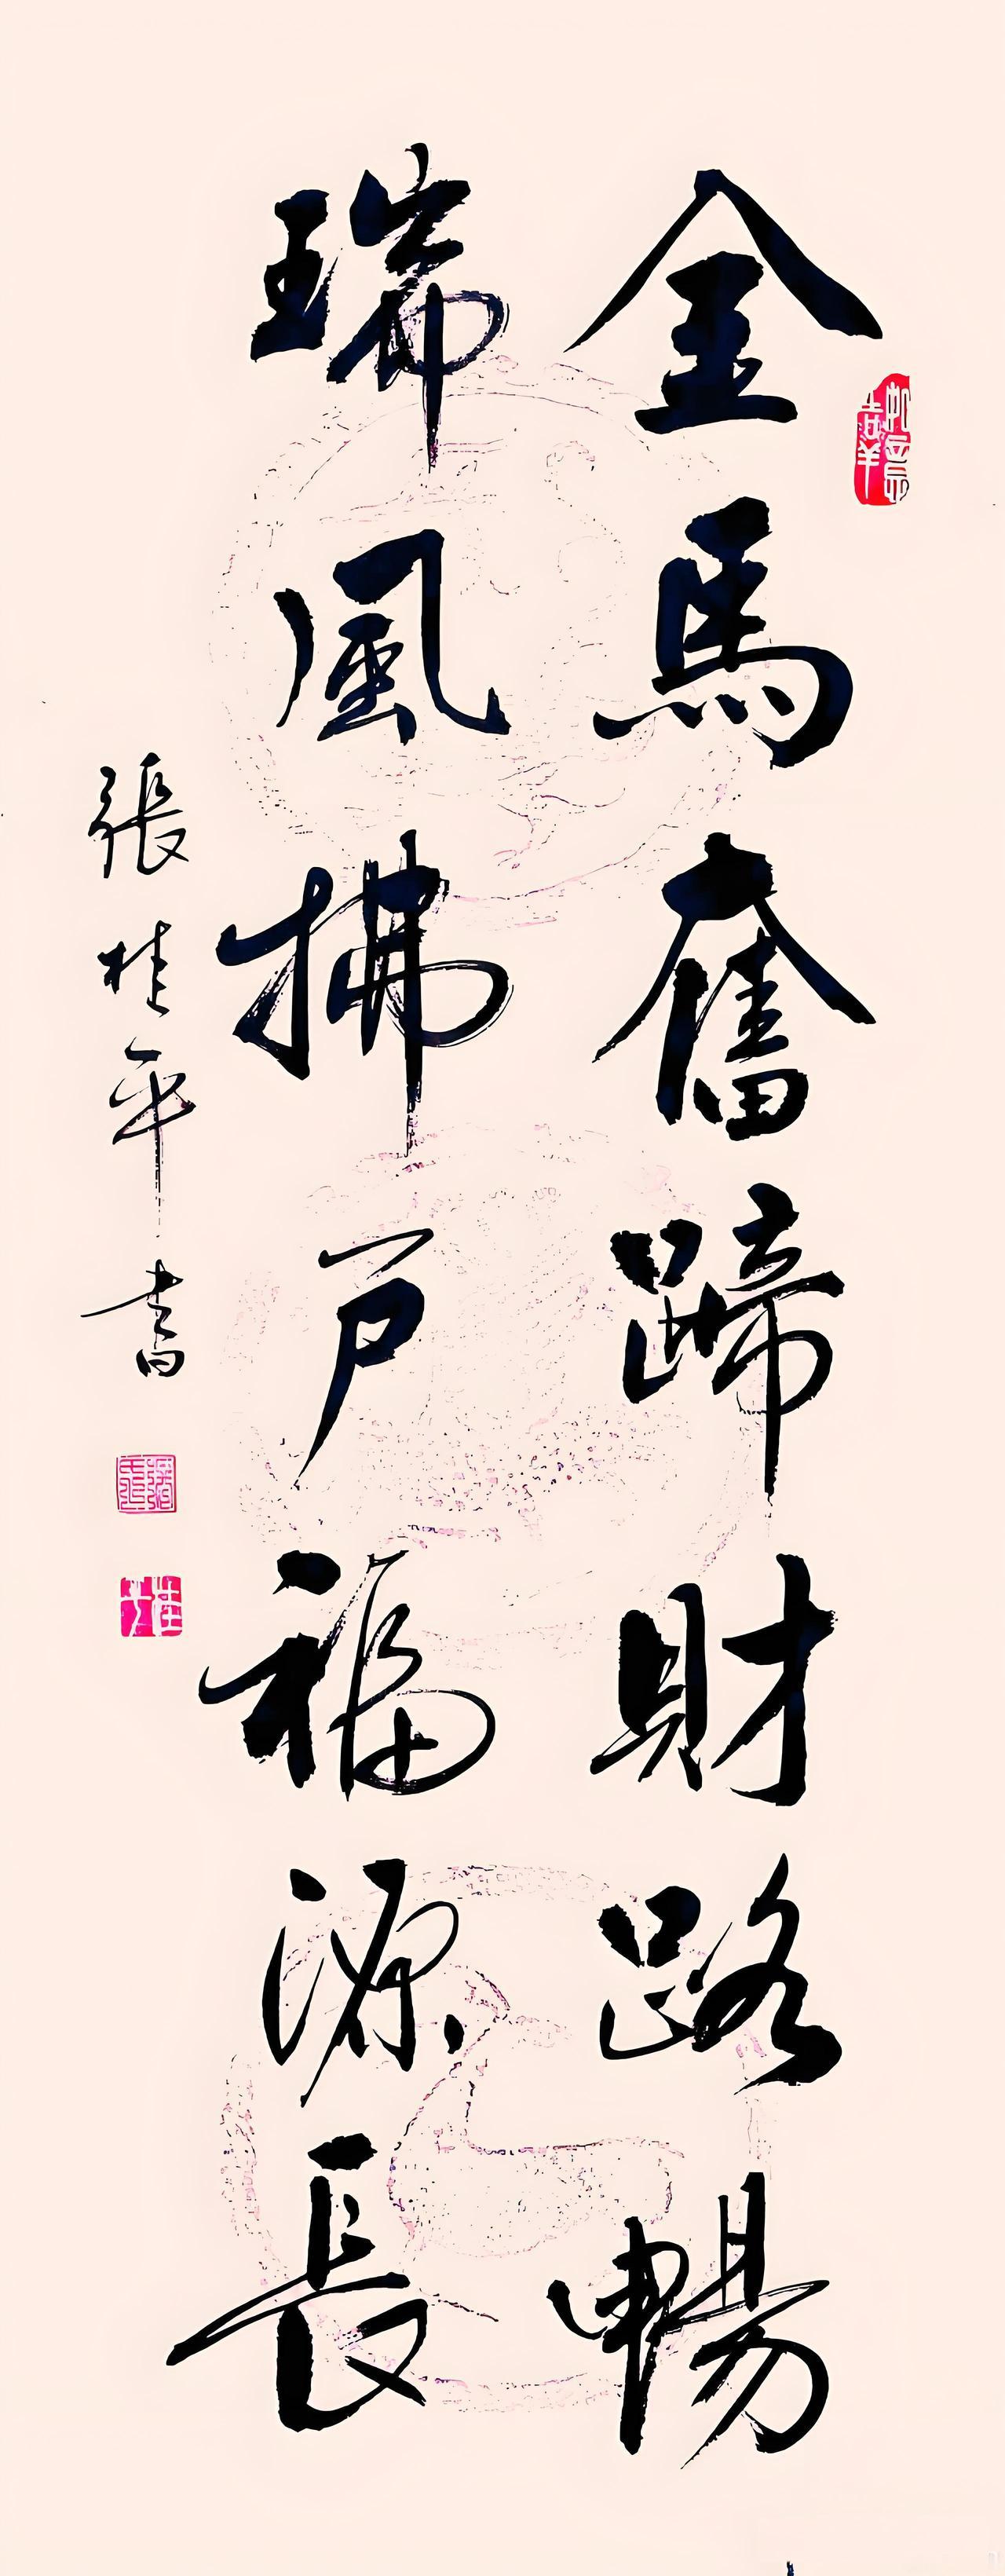 金馬奮蹄財路暢
瑞風拂户福源長
張桂平書